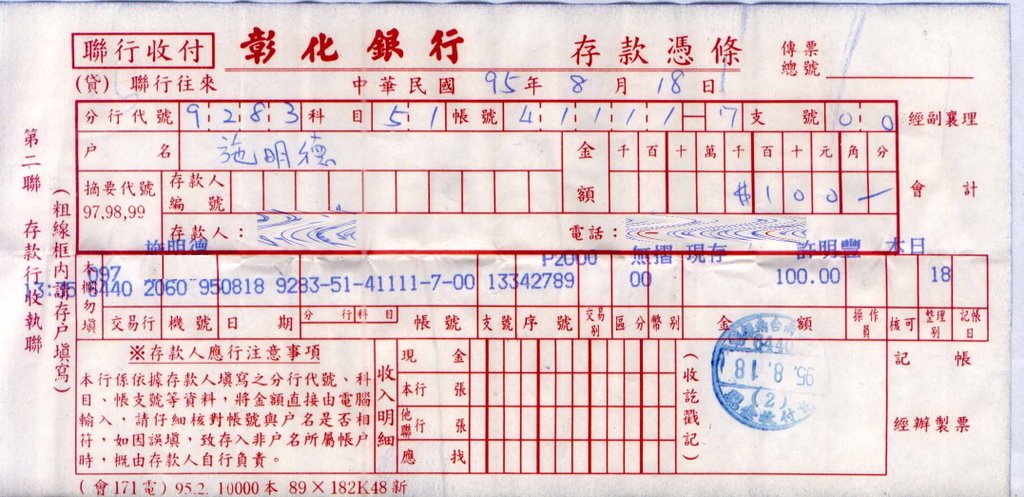 聯行收付 彰化銀行 存款憑條 傳票總號
(貸) 聯行往來 中華民國 95年 8月 18日
分行代號 9283 科目 51 帳號 41111-7 支號 00 經副襄理
戶名 施明德 金額 千百十萬千百十元角分
摘要代號 97,98,99 存款人編號 $100- 會計
存款人: 電話:
施明德 P2000 無摺 現存 許明豐 本日
097
0440 2060 950818 9283-51-41111-7-00 13342789 00 100.00 18
本欄勿填 交易行 機號 日期 分行科目 帳號 支號 序號 交易別 區分 幣別 金額 操作員 核可 整理別 記帳日
※存款人應行注意事項
本行係依據存款人填寫之分行代號、科
目、帳支號等資料,將金額直接由電腦
輸入,請仔細核對帳號與戶名是否相
符,如因誤填,致存入非戶名所屬帳戶
時,概由存款人自行負責。
收入明細
現金
本行 張
他聯行 張
應找
(收訖戳記)
0440
95.8.18
(2)
記帳
經辦製票
(會171電) 95.2. 10000本 89×182K48新
第二聯 存款行收執聯
(粗線框內請存戶填寫)